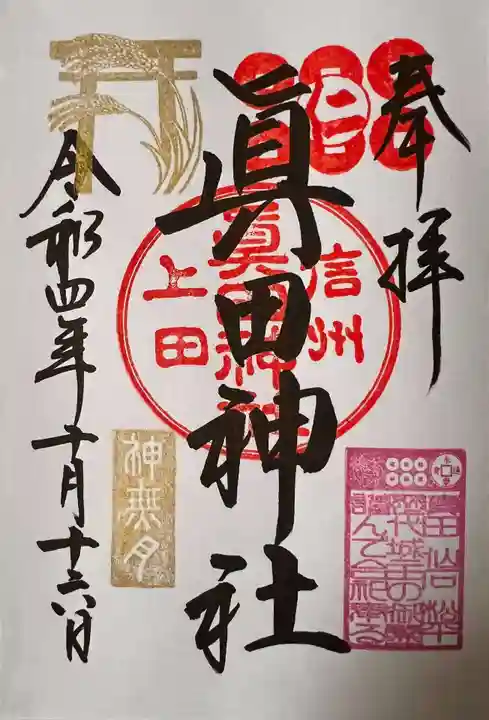 奉拝
信州
眞田神社
眞田神社
上田
神無月
令和四年十月十六日